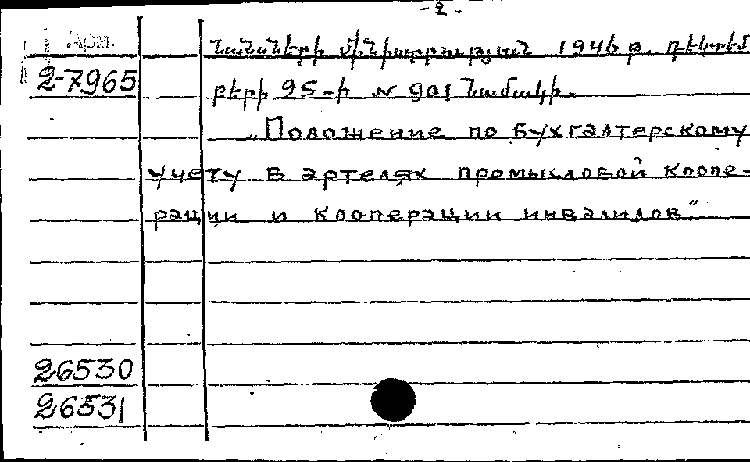 - 2 -
Арм. նանսների մինիստրության 1946 թ. դեկտեմ
2-7965 բերի 25-ի № 901 նամակի.
„Положение по бухгалтерскому
учету в артелях промысловой коопе-
рации и кооперации инвалидов"
26530
26531